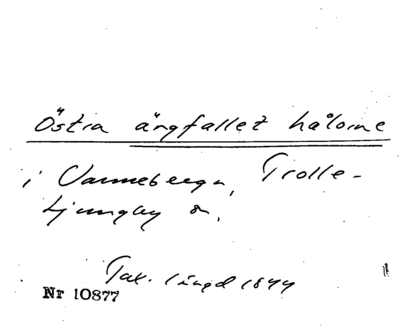 Östra ängfallet hålorne
i Vanneberga, Trolle-
Ljungby s.
Tax. längd 1844
Nr 10877